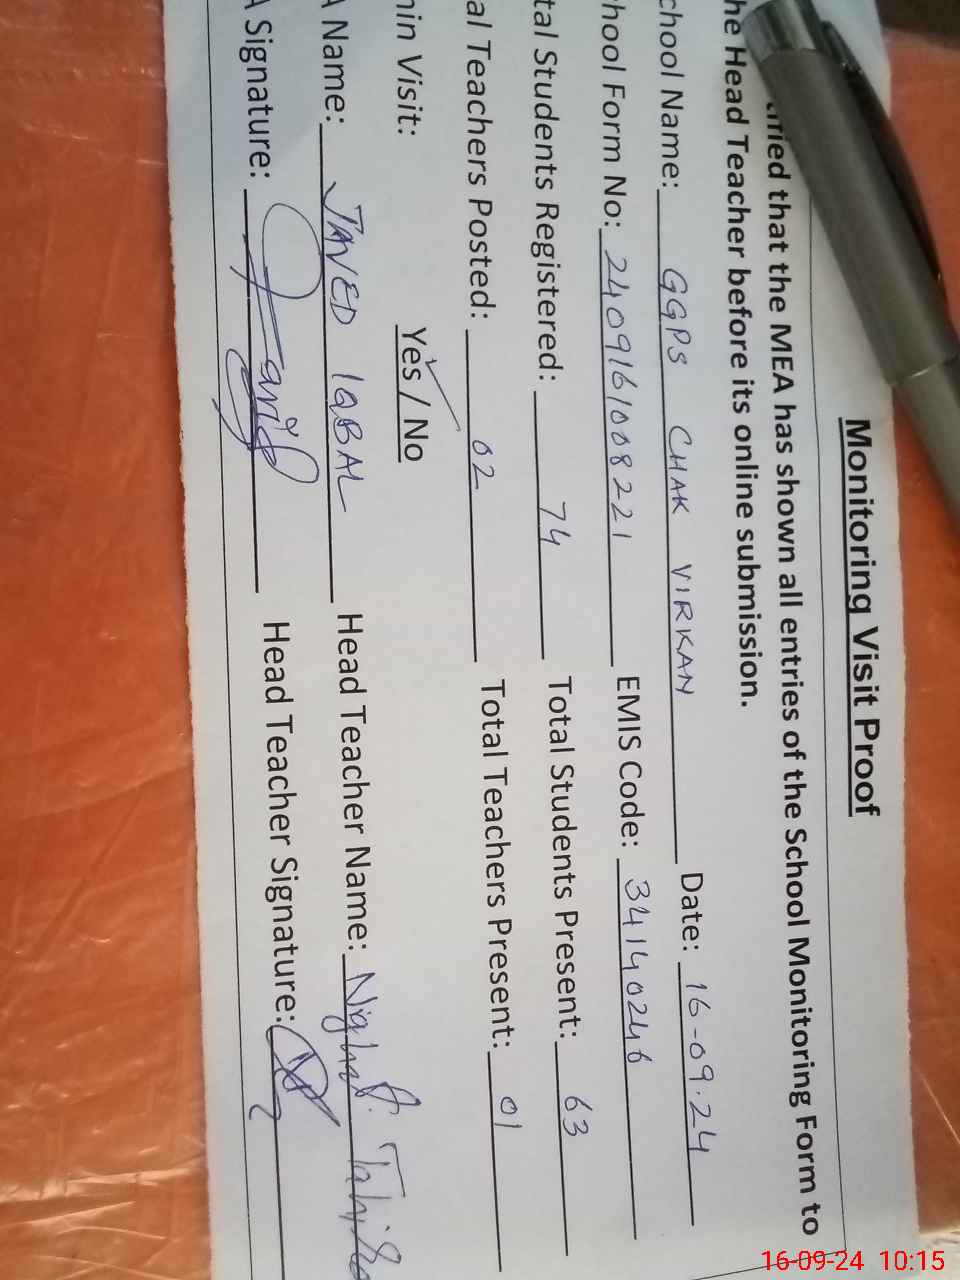 Monitoring Visit Proof
that the MEA has shown all entries of the School Monitoring Form to
he Head Teacher before its online submission.
chool Name: GGPS CHAK VIRKAN Date: 16-09-24
hool Form No: 2409161008221 EMIS Code: 34140246
tal Students Registered: 74 Total Students Present: 63
al Teachers Posted: 02 Total Teachers Present: 01
in Visit: Yes / No
A Name: JAVED IQBAL Head Teacher Name:
A Signature: Head Teacher Signature:
16-09-24 10:15